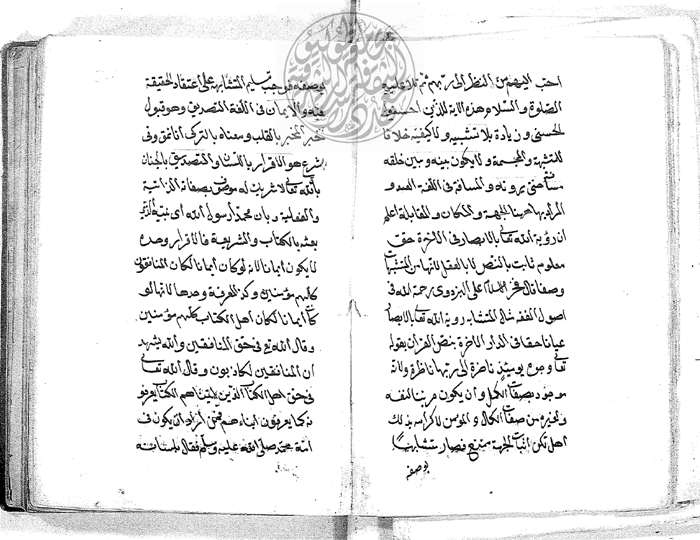 احب اليهم من النظر الى ربهم ثم تلا عليه
الصلوة والسلام هذه الاية للذين احسنوا
الحسنى وزيادة بلا تشبيه ولا كيفية خلافا
للمشبهة والمجسمة ولا يكون بينه وبين خلقه
مسافة حتى يرونه والمسافة فى اللغة البعد و
المراد بها هنا الجهة والمكان والمقابلة اعلم
ان رؤية الله تعالى بالابصار فى الآخرة حق
معلوم ثابت بالنص لا بالعقل لانها من المتشابهات
وصفا قال فخر الاسلام على البزدوى رحمة الله فى
اصول الفقه مثال المتشابه روية الله تعا بالابصار
عيانا حقا فى الدار الآخرة بنص القرآن بقوله
تعا وجوه يومئذ ناضرة الى ربها ناظرة ولانه
موجود بصفات الكمال وان يكون مرئيا لنفسه
ولغيره من صفات الكمال والمؤمن لاكرامه بذلك
اهل لكن اثبات الجهة ممتنع فصار متشابها
بوصفه
بوصفه فوجب تسليم المتشابه على اعتقاد الحقيقة
فيه والايمان فى اللغة التصديق وهو قبول
خبر المخبر بالقلب ومعناه بالترك وفى
الشرع هو الاقرار باللسان والتصديق بالجنان
بالله تعا لا شريك له موصوف بصفاته الذاتية
والفعلية وبان محمدا رسول الله اى نبيه الذى
بعثه بالكتاب والشريعة فالاقرار وحده
لا يكون ايمانا لانه لو كان ايمانا لكان المنافقون
كلهم مؤمنين وكذا المعرفة وحدها لانها لو
كانت ايمانا لكان اهل الكتاب كلهم مؤمنين
وقال الله تع فى حق المنافقين والله يشهد
ان المنافقين لكاذبون وقال الله تعالى
فى حق اهل الكتاب الذين اتيناهم الكتاب يعرفو
نه كما يعرفون ابناءهم فمن اراد ان يكون فى
امة محمد صلى الله عليه وسلم فقال بلسانه